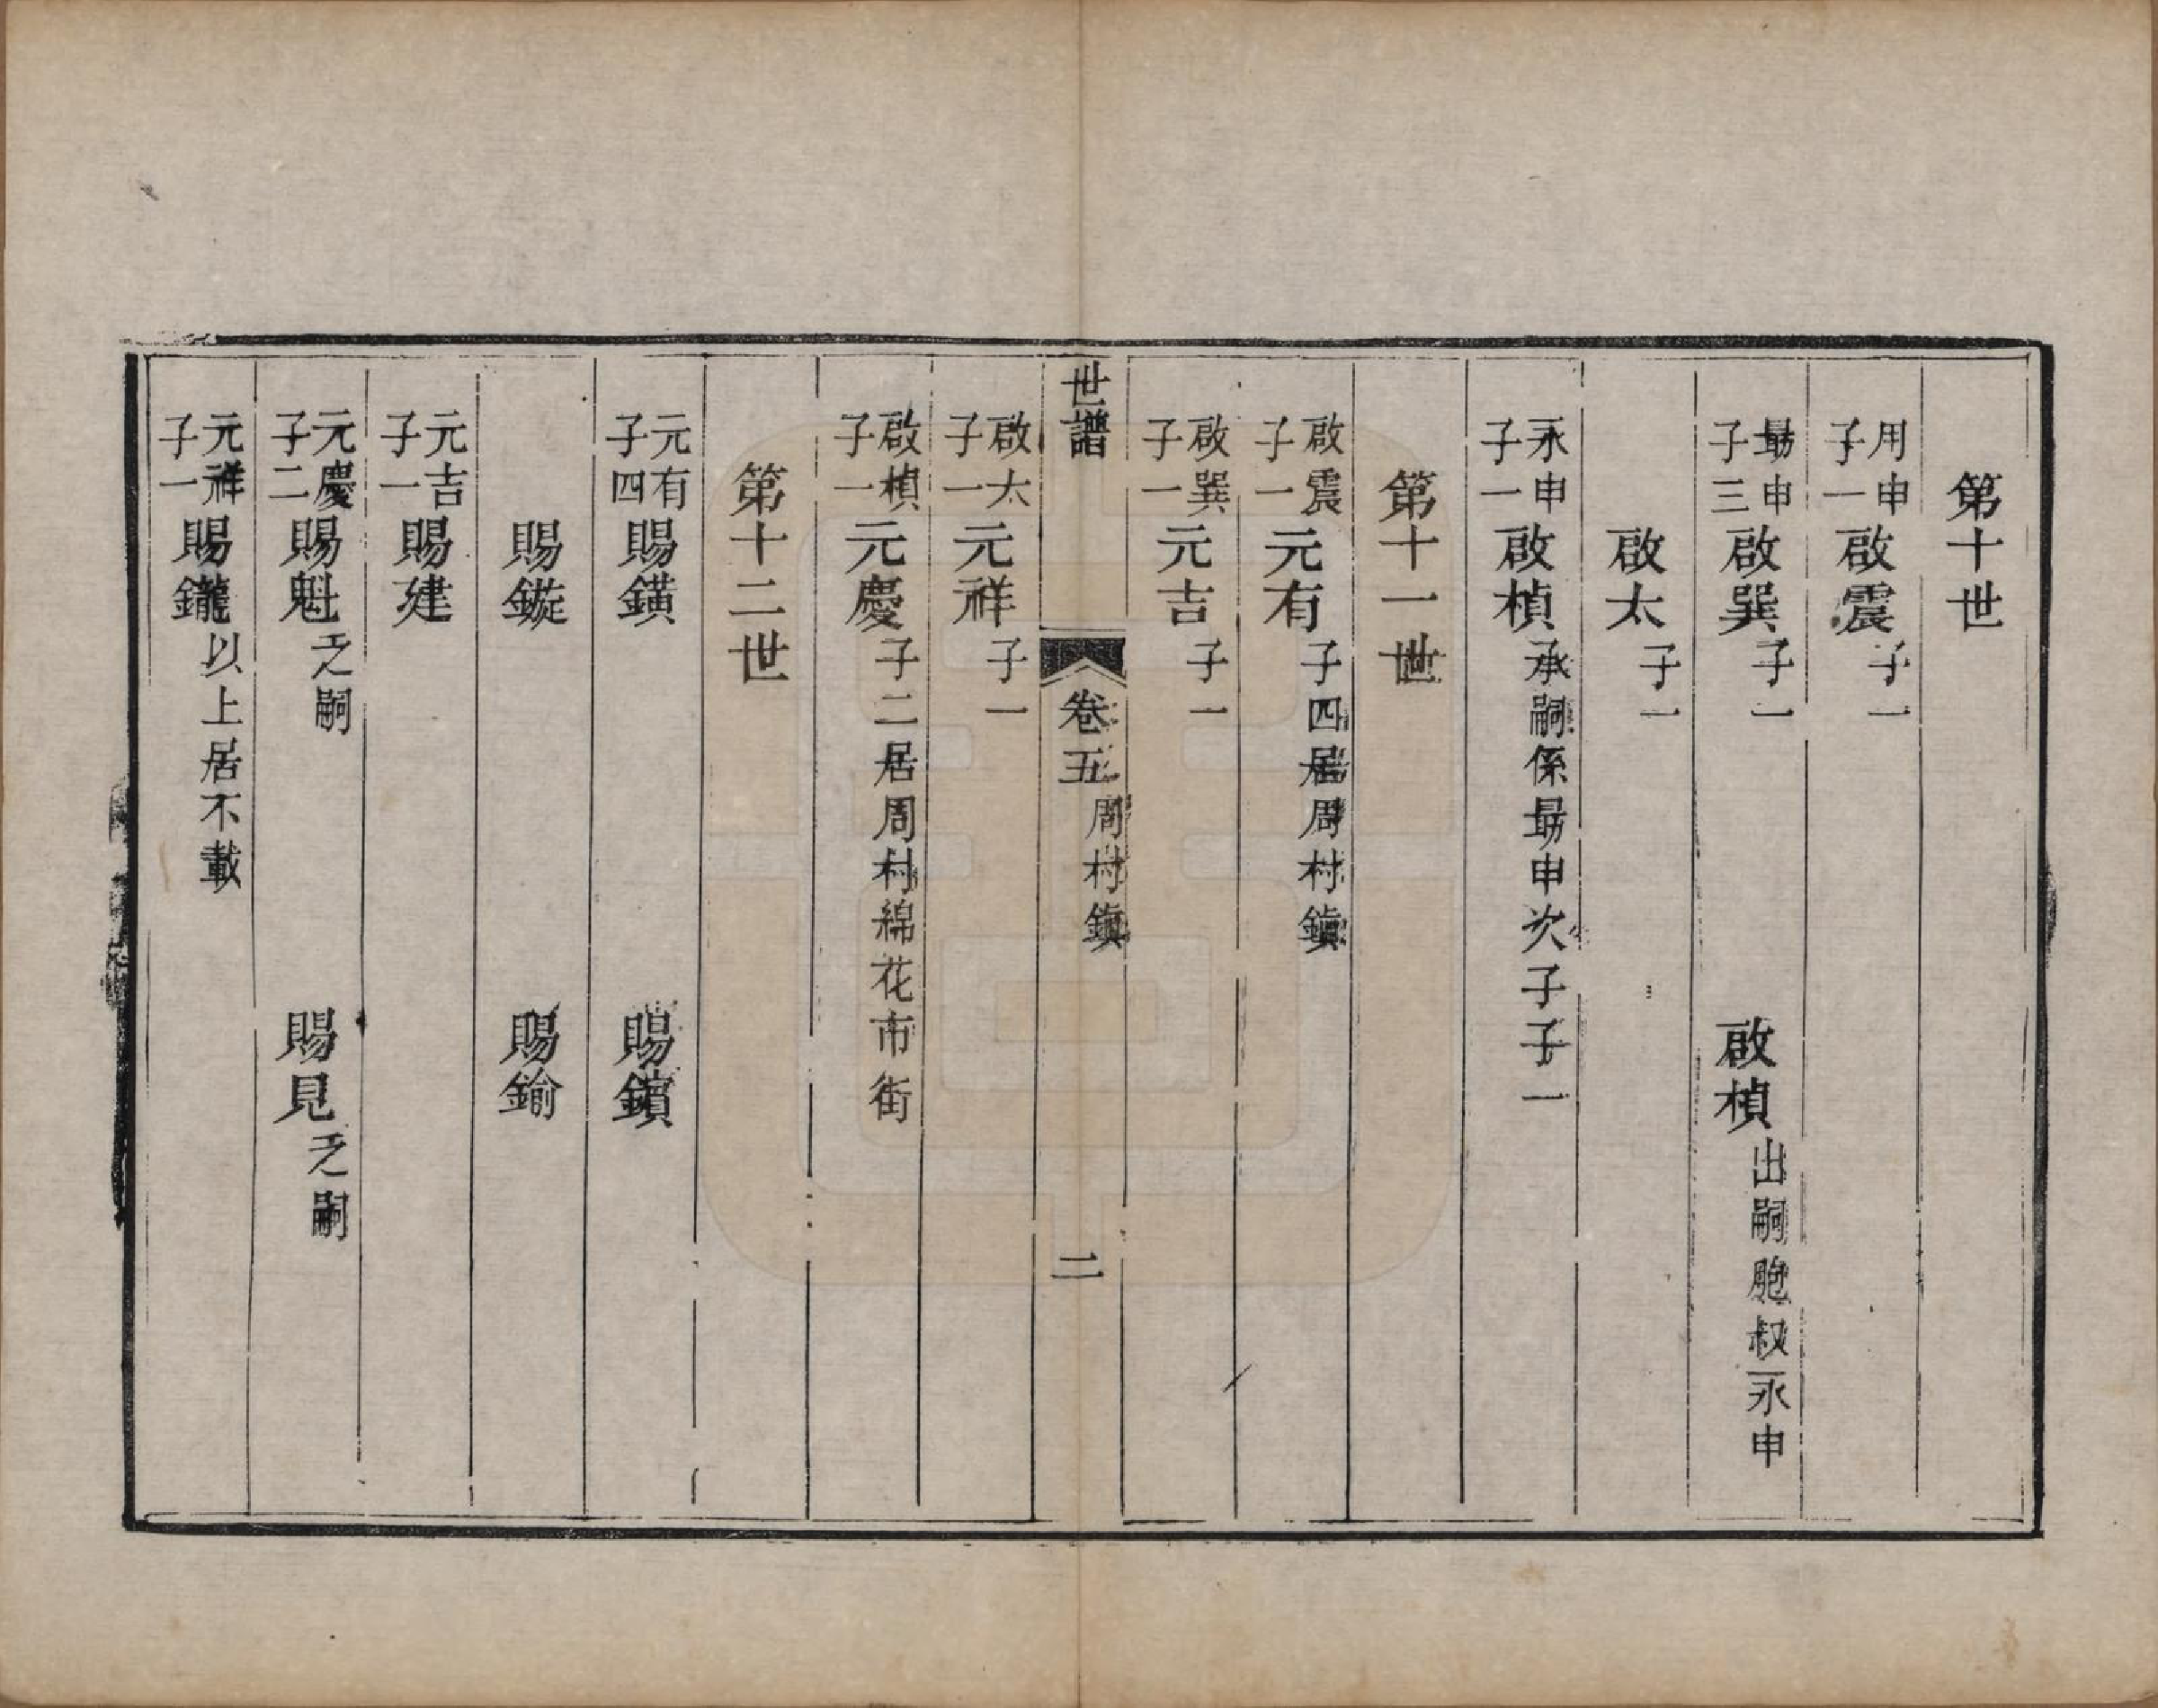 第十世
用申子一 啟震 子一
最申子三 啟巽 子一 啟楨 出嗣胞叔永申
啟太 子一
永申子一 啟楨 承嗣係最申次子子一
第十一世
啟震子一 元有 子四居周村鎮
啟巽子一 元吉 子一
世譜 卷五 周村鎮 二
啟太子一 元祥 子一
啟楨子一 元慶 子二居周村綿花市街
第十二世
元有子四 賜鐄 賜鑌
賜鏇 賜鍮
元吉子一 賜建
元慶子二 賜魁 乏嗣 賜見 乏嗣
元祥子一 賜鑨 以上居不載